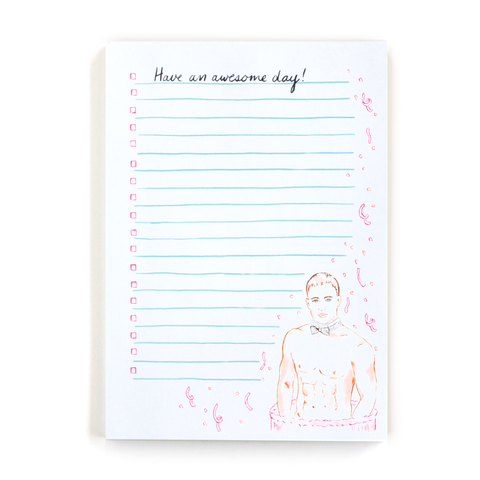 Have an awesome day!